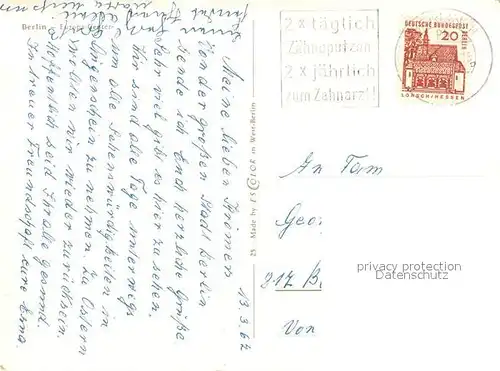 Berlin
2 x täglich
Zähneputzen
2 x jährlich
zum Zahnarzt!
DEUTSCHE BUNDESPOST
BERLIN
20
LORSCH/HESSEN
13.3.67
Meine lieben
Von der großen Stadt Berlin
sende ich Euch herzliche Grüße
Sehr viel gibt es hier zu sehen.
Wir sind alle Tage unterwegs
um alle Sehenswürdigkeiten in
Augenschein zu nehmen. Zu Ostern
wollen wir wieder zurück sein.
Hoffentlich seid Ihr alle gesund.
In treuer Freundschaft eure Erna.
25 Made by COLOR in West-Berlin
An Fam
Geor
217 B
Von
privacy protection
Datenschutz